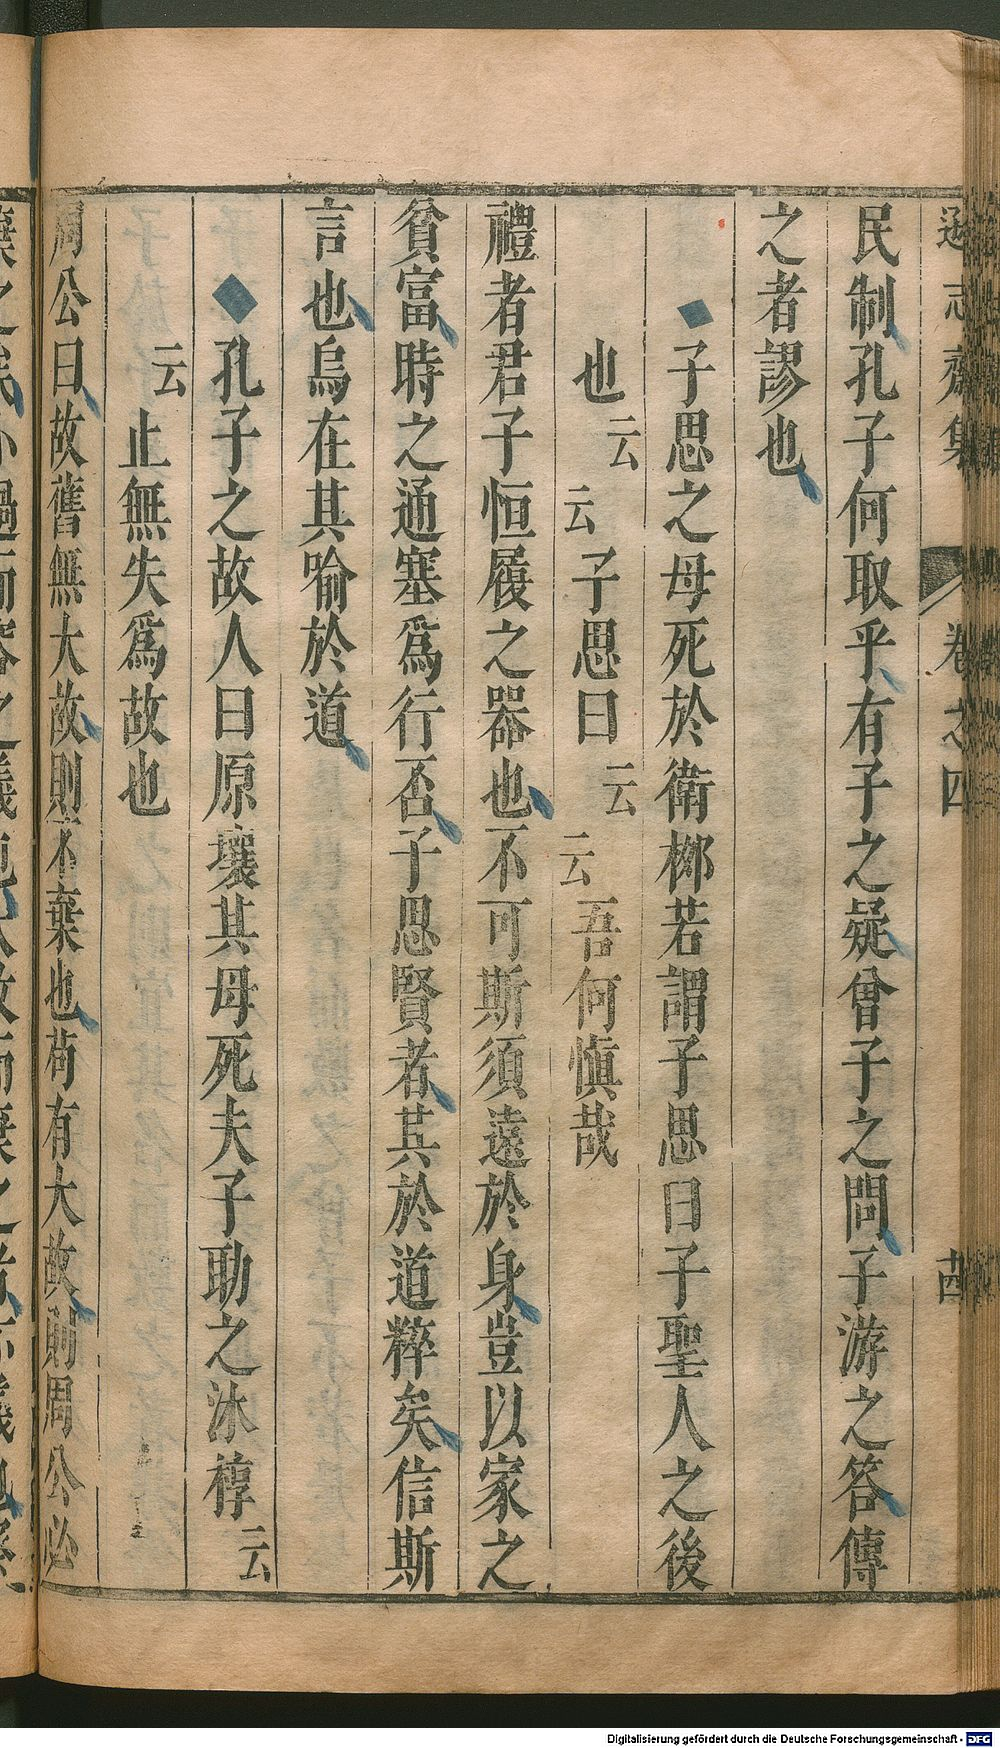 遜志齋集 卷之四 十四
民制孔子何取乎有子之疑曾子之問子游之答傳
之者謬也
子思之母死於衛栁若謂子思曰子聖人之後
也云云子思曰云云吾何慎哉
禮者君子恒履之器也不可斯須遠於身豈以家之
貧富時之通塞爲行否子思賢者其於道粹矣信斯
言也烏在其喻於道
孔子之故人曰原壤其母死夫子助之沐椁云
云止無失爲故也
周公曰故舊無大故則不棄也苟有大故則周公必
Digitalisierung gefördert durch die Deutsche Forschungsgemeinschaft - DFG